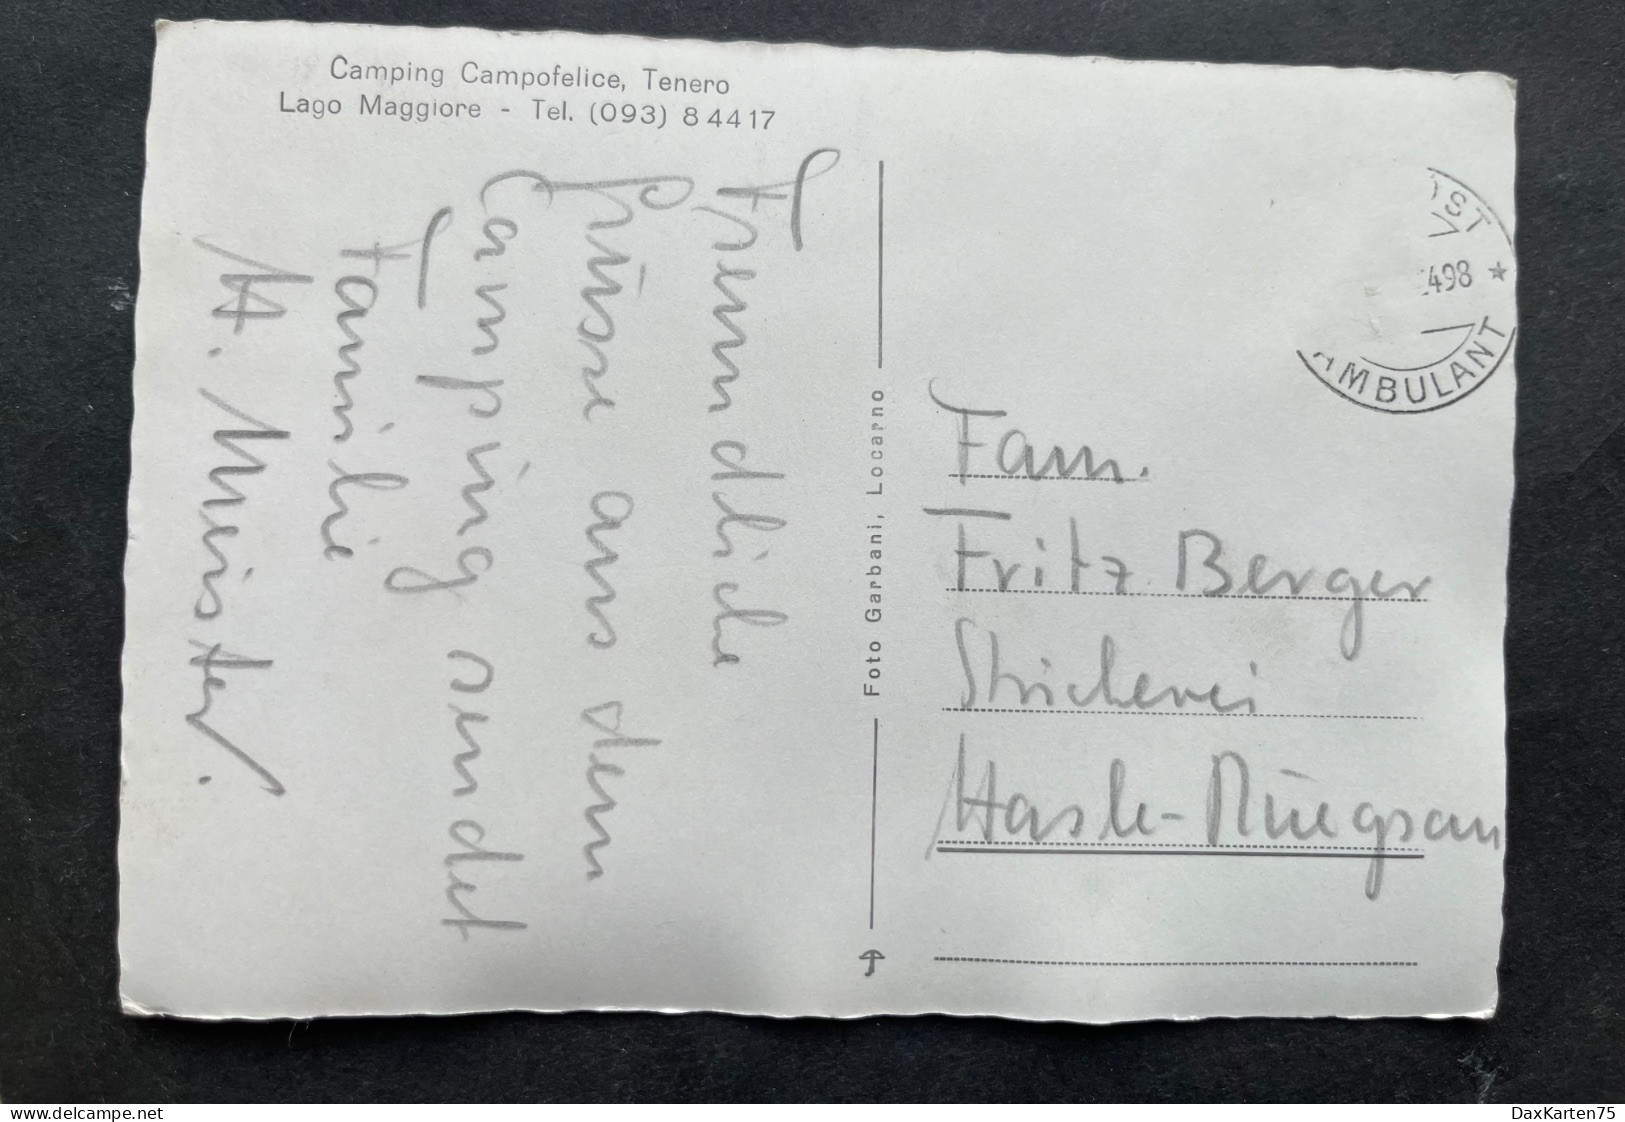 Camping Campofelice, Tenero
Lago Maggiore - Tel. (093) 8 44 17
Freundliche
Grüsse aus dem
Camping sendet
Familie
H. Meister.
Foto Garbani, Locarno
498 *
AMBULANT
Fam.
Fritz Berger
Strickerei
Hasle-Rüegsau
www.delcampe.net
DaxKarten75